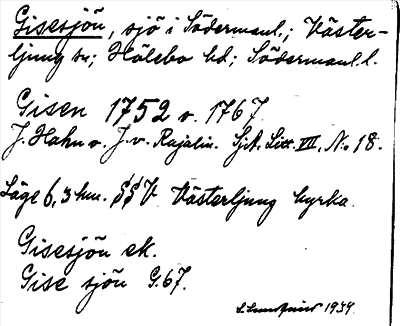 Gisesjön, sjö i Södermanl.; Väster-
ljung sn; Hölebo hd; Södermanl. l.
Gisen 1752 o. 1767.
J. Hahn o. J. v. Rajalin. Sjk. Litt. VII, No 18.
Läge 6,3 km. SSV Västerljung kyrka.
Gisesjön ek.
Gise sjön G.67.
1939